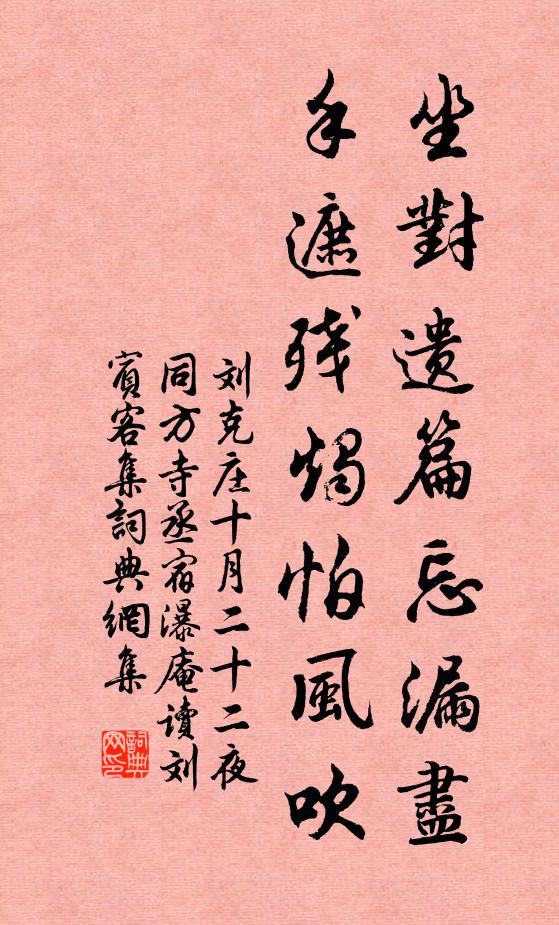 坐對遺篇忘漏盡
手遮残燭怕風吹
刘克庄十月二十二夜
同方寺丞宿瀑庵读刘
賓客集詞典網集
詞典網印